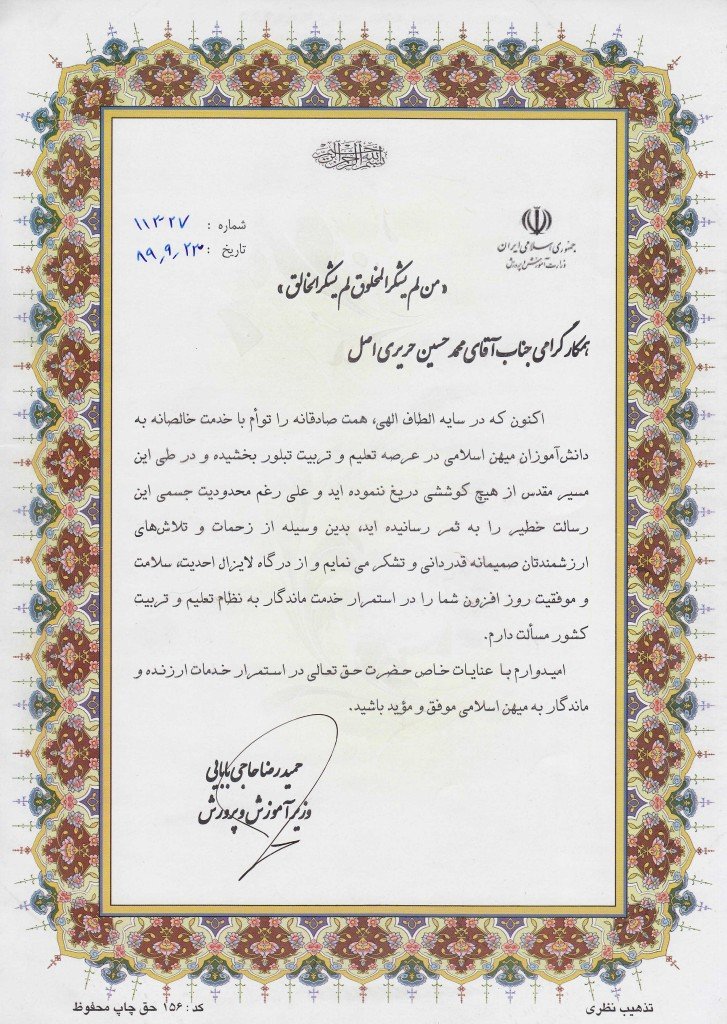 بسم الله الرحمن الرحیم
جمهوری اسلامی ایران
وزارت آموزش و پرورش
شماره : ۱۱۳۲۷
تاریخ : ۸۹٫۹٫۲۳
«من لم یشکر المخلوق لم یشکر الخالق»
همکار گرامی جناب آقای محمد حسین حریری اصل
اکنون که در سایه الطاف الهی، همت صادقانه را توأم با خدمت خالصانه به
دانش‌آموزان میهن اسلامی در عرصه تعلیم و تربیت تبلور بخشیده و در طی این
مسیر مقدس از هیچ کوششی دریغ ننموده اید و علی رغم محدودیت جسمی این
رسالت خطیر را به ثمر رسانیده اید، بدین وسیله از زحمات و تلاش‌های
ارزشمندتان صمیمانه قدردانی و تشکر می نمایم و از درگاه لایزال احدیت، سلامت
و موفقیت روز افزون شما را در استمرار خدمت ماندگار به نظام تعلیم و تربیت
کشور مسألت دارم.
امیدوارم با عنایات خاص حضرت حق تعالی در استمرار خدمات ارزنده و
ماندگار به میهن اسلامی موفق و مؤید باشید.
حمیدرضا حاجی بابایی
وزیر آموزش و پرورش
تذهیب نظری
کد : ۱۵۶ حق چاپ محفوظ